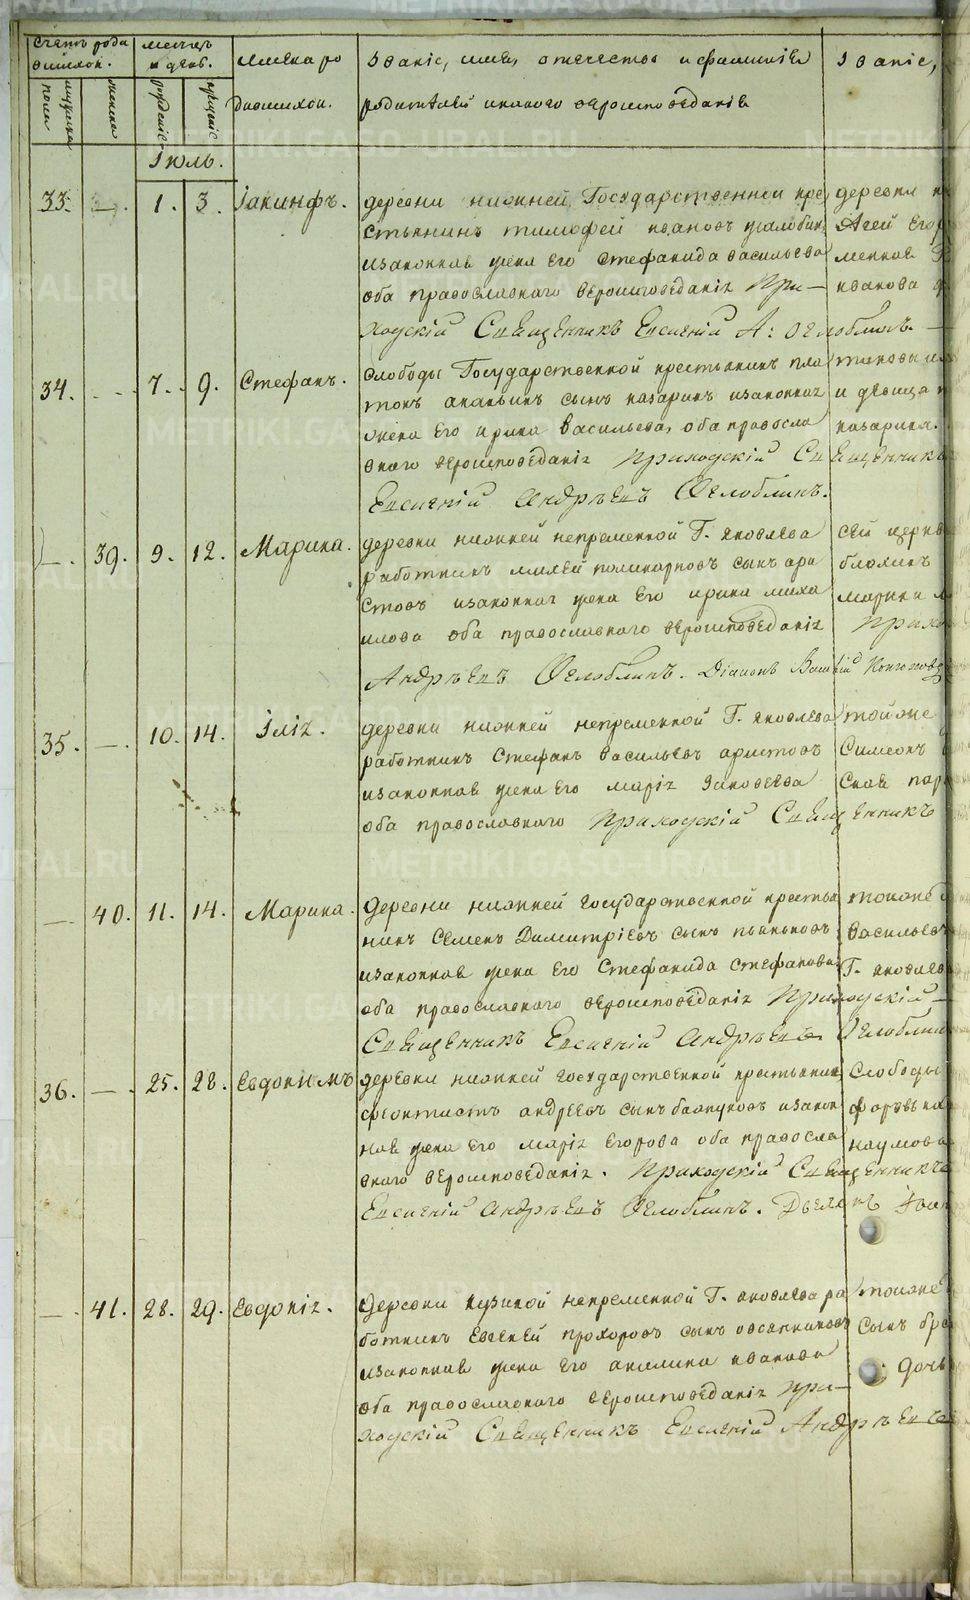 Счетъ роди вшихся.
мужеска пола
женска
месяцъ и день.
рожденіе
крещеніе
Имена ро дившихся.
Званіе, имя, отечество и фамилія
родителей и какого вероисповеданія
Званіе,
Іюль.
33. 1. 3. Іакинфъ.
деревни нижней Государственней кре
стьянинъ тимофей ивановъ
изаконная жена его стефанида васильева
оба православнаго вероисповеданія При–
ходскій Священникъ Евгений А: Оглоблинъ.
деревни
Агей Егор
иванова
34. 7. 9. Стефанъ.
слободы Государственной крестьянинъ пла
тонъ ананьинъ сынъ казаринъ изаконная
жена его ирина васильева, оба правосла
внаго вероисповеданія Приходскій Священникъ
Евгений Андрѣевъ Оглоблинъ.
и девица
казарина.
39. 9. 12. Марина.
деревни нижней непременной Г. яковлева
работникъ михей поликарповъ сынъ ари
стовъ изаконная жена его ирина миха
илова оба православнаго вероисповеданія Прихо
Андрѣевъ Оглоблинъ. Діаконъ
сей церкв
блохинъ
марина
35. 10. 14. Ілія.
деревни нижней непременной Г. яковлева
работникъ стефанъ васильевъ аристовъ
изаконная жена его марія яковлева
оба православнаго Приходскій Священникъ
тойже
Симеонъ
40. 11. 14. Марина.
деревни нижней государственной крестья
нинъ семенъ Димитріевъ сынъ пьянковъ
изаконная жена его стефанида стефанова
оба православнаго вероисповеданія Приходскій
Священникъ Евгений Андрѣевъ Оглоблин
тойже
васильевъ
Г. яковлев
36. 25. 28. Евдокимъ
деревни нижней государственной крестьянин
феоктистъ андреевъ сынъ изакон
ная жена его марія егорова оба правосла
внаго вероисповеданія. Приходскій Священникъ
Евгений Андрѣевъ Оглоблинъ. Іван
Слободы
наумова
41. 28. 29. Евдокія.
деревни кузиной непременной Г. яковлева ра
ботникъ Евсевей прохоровъ сынъ овсянниковъ
изаконная жена его акилина иванова
оба православнаго вероисповеданія При–
ходскій Священникъ Евгений Андрѣевъ
тойже
сынъ
дочь
METRIKI.GASO-URAL.RU